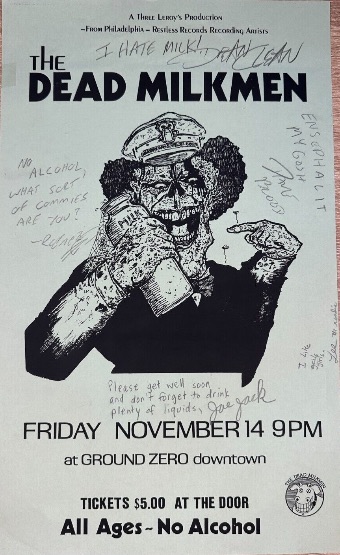 A Three Leroy's Production
–From Philadelphia – Restless Records Recording Artists
I HATE MILK! DEAN CLEAN
the
DEAD MILKMEN
NO
ALCOHOL,
WHAT SORT
OF COMMIES
ARE YOU?
MY GOSH
MILK
Please get well soon,
and don't forget to drink
plenty of liquids,
Joe Jack
FRIDAY NOVEMBER 14 9 PM
at GROUND ZERO downtown
THE DEAD MILKMEN
TICKETS $5.00 AT THE DOOR
All Ages ~ No Alcohol